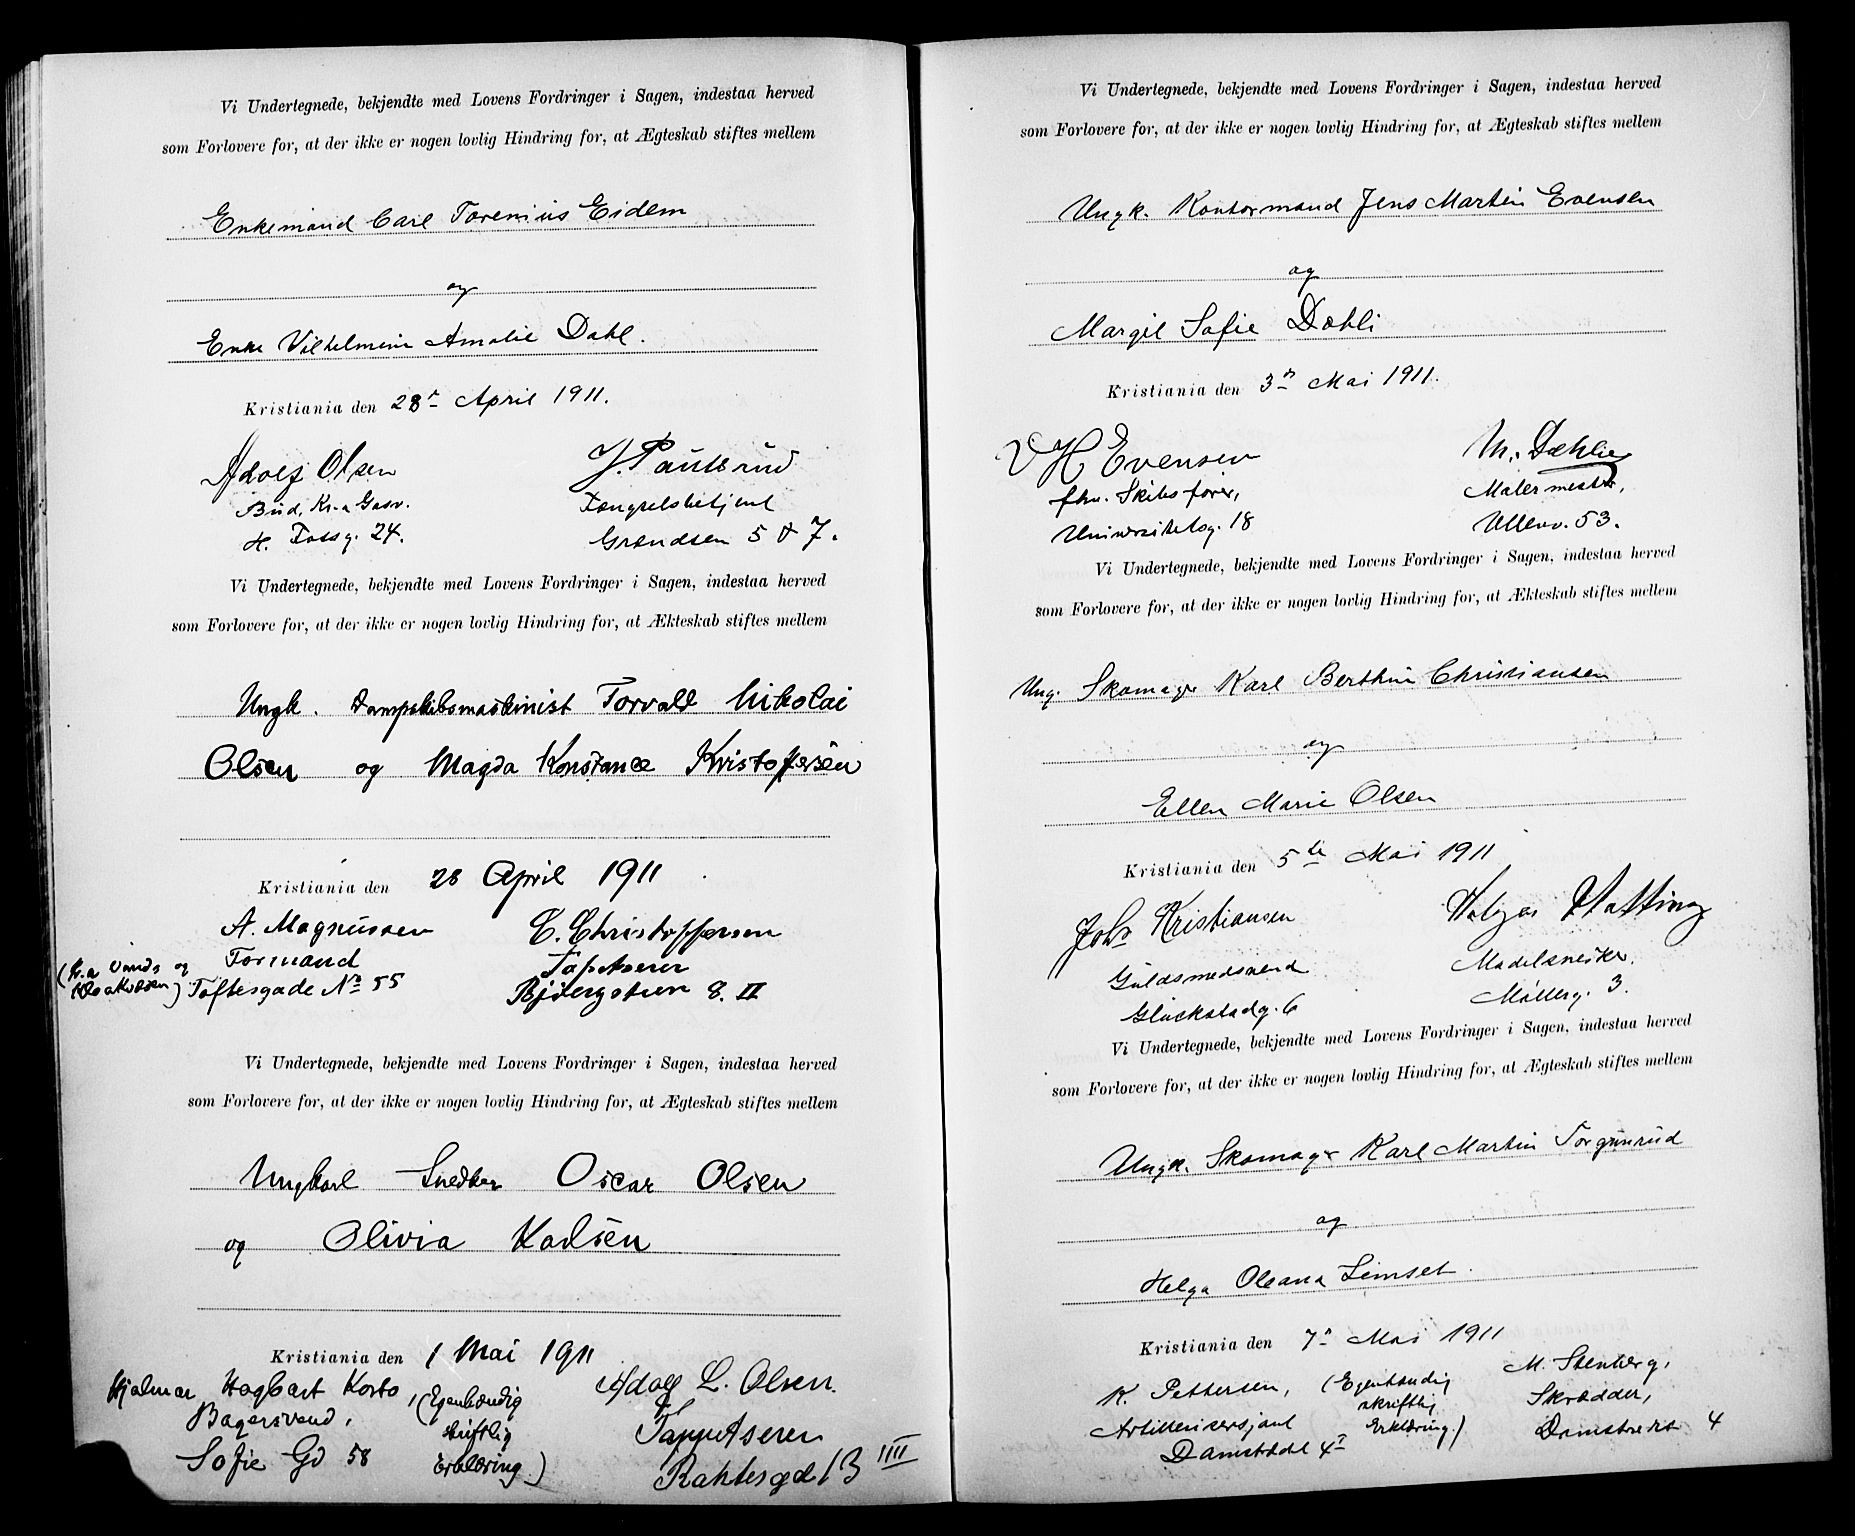 Vi Undertegnede, bekjendte med Lovens Fordringer i Sagen, indestaa herved
som Forlovere for, at der ikke er nogen lovlig Hindring for, at Ægteskab stiftes mellem
Enkemand Carl Torenius Eidem
og
Enke Vilhelmine Amalie Dahl.
Kristiania den 28n April 1911.
Adolf Olsen
Bud, Kr.a Gasv.
H. Fossg. 24.
J. Paulsrud
Fængselsbetjent
Grændsen 5 & 7.
Vi Undertegnede, bekjendte med Lovens Fordringer i Sagen, indestaa herved
som Forlovere for, at der ikke er nogen lovlig Hindring for, at Ækteskab stiftes mellem
Ungk. Dampskibsmaskinist Torvald Nikolai
Olsen og Magda Konstance Kristoffersen
Kristiania den 28 April 1911
A. Magnussen
Formand
(Kr.a Vands og
Kloakvæsen) Toftesgade No 55
C. Christoffersen
Tapetserer
Bjergstien 8. II
Vi Undertegnede, bekjendte med Lovens Fordringer i Sagen, indestaa herved
som Forlovere for, at der ikke er nogen lovlig Hindring for, at Ægteskab stiftes mellem
Ungkarl Snedker Oscar Olsen
og Olivia Karlsen
Kristiania den 1 Mai 1911
Hjalmar Hagbart Korbo,
Bagersvend,
Sofie Gd 58
(Egenhændig
skriftlig
Erklæring)
Adolf L. Olsen.
Tappetserer
Rahtesgd 13 IIII
Vi Undertegnede, bekjendte med Lovens Fordringer i Sagen, indestaa herved
som Forlovere for, at der ikke er nogen lovlig Hindring for, at Ægteskab stiftes mellem
Ungk. Kontormand Jens Martin Evensen
og
Margit Sofie Dæhli
Kristiania den 3n Mai 1911.
H Evensen
fhv. Skibsfører,
Universitetsg. 18
M. Dæhlie
Malermester,
Ullev. 53.
Vi Undertegnede, bekjendte med Lovens Fordringer i Sagen, indestaa herved
som Forlovere for, at der ikke er nogen lovlig Hindring for, at Ækteskab stiftes mellem
Ung. Skomager Karl Berthin Christiansen
og
Ellen Marie Olsen
Kristiania den 5te Mai 1911
Johs Kristiansen
Guldsmedsvend
Glückstadg. 6
Holger Hatting
Modelsnekker.
Møllerg. 3.
Vi Undertegnede, bekjendte med Lovens Fordringer i Sagen, indestaa herved
som Forlovere for, at der ikke er nogen lovlig Hindring for, at Ægteskab stiftes mellem
Ungk. Skomager Karl Martin Torgunrud
og
Helga Oleana Limset.
Kristiania den 7n Mai 1911
K. Pettersen,
Artillerisersjant
Damstrædet 4
(Egenhændig
skriftlig
Erklæring.)
M. Stenberg,
Skrædder,
Damstrædet 4